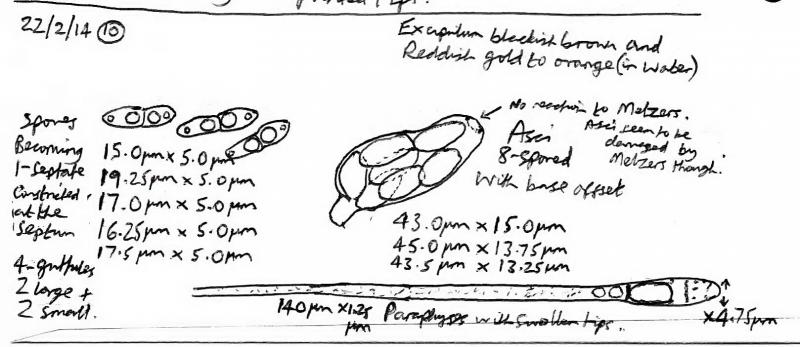 22/2/14 10
Excipulum blackish brown and
Reddish gold to orange (in water)
Spores
Becoming
1-septate
Constricted
at the
septum
4-guttules
2 large +
2 small.
15.0µm x 5.0µm
19.25µm x 5.0µm
17.0µm x 5.0µm
16.25µm x 5.0µm
17.5µm x 5.0µm
No reaction to Melzers.
Asci seem to be
damaged by
Melzers though.
Asci
8-spored
with base offset
43.0µm x 15.0µm
45.0µm x 13.75µm
43.5µm x 13.25µm
140µm x 1.25
µm
Paraphyses with swollen tips.
x 4.75µm